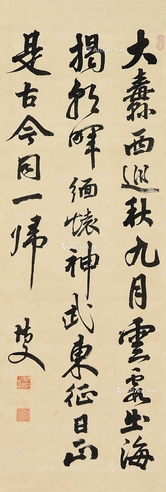 大纛西巡秋九月雲霞出海
揭朝暉緬懷神武東征日正
是古今同一歸
博文